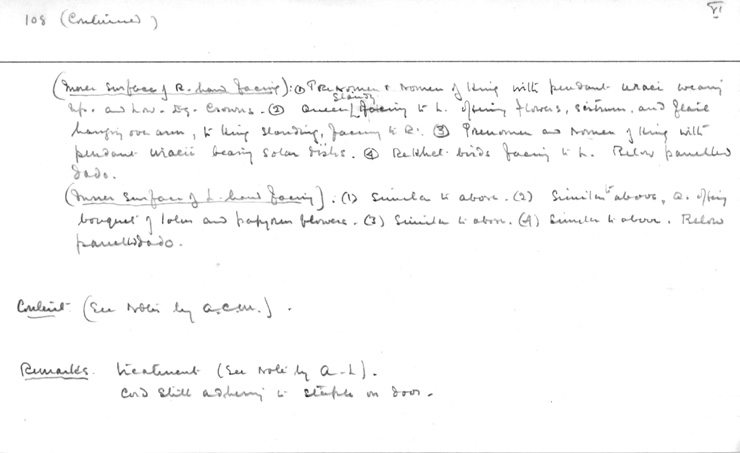 108 (Continued)
VI
(Inner surface of R. hand facing): ① Prenomen & Nomen of King with pendant uraei wearing
Up. and Low. Eg. Crowns. ② Queen standg facing to L. offering flowers, sistrum, and
hanging over arm, to King standing, facing to R. ③ Prenomen and Nomen of King with
pendant uraei bearing Solar disks. ④ Rekhet birds facing to L. Below panelled
dado.
(Inner surface of L. hand facing). (1) Similar to above. (2) Similar to above, Q. offering
bouquet of lotus and papyrus flowers. (3) Similar to above. (4) Similar to above. Below
panelled dado.
Content (See Notes by A.C.M.).
Remarks. Treatment (See Note by A-L).
Cord still adhering to staple on door.